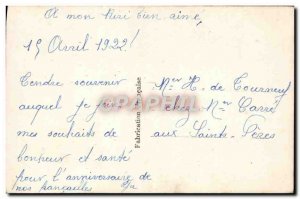 A mon Henri bien aimé
15 Avril 1922!
Tendre souvenir
auquel je joins
mes souhaits de
bonheur et santé
pour l'anniversaire de
nos fiançailles
Fabrication Française
Mr H. de Tourneuf
chez Mr Carré
aux Sainte-Pères